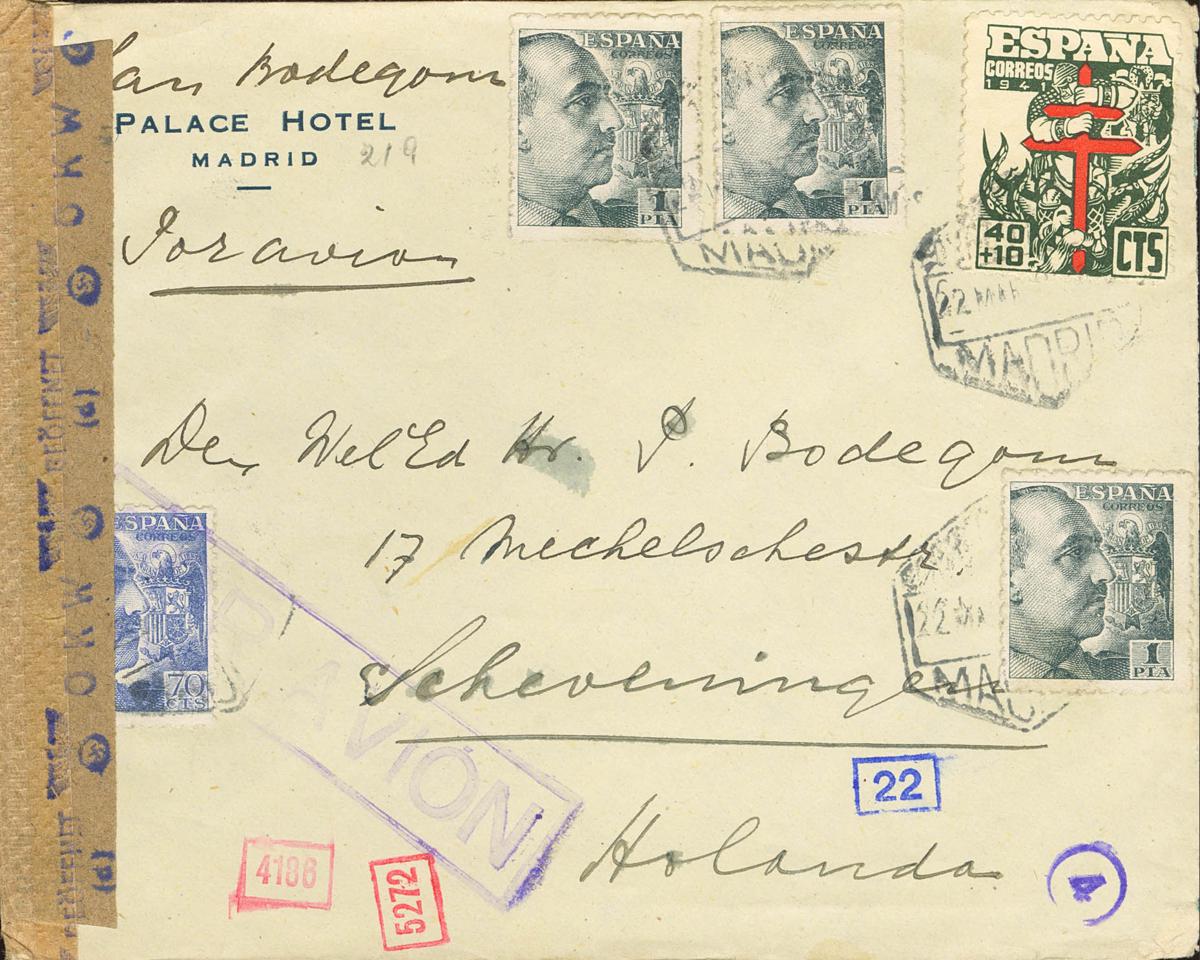 van Bodegom
PALACE HOTEL
MADRID 219
Por avion
ESPAÑA
CORREOS
1
PTA
ESPAÑA
CORREOS
1
PTA
MADRID
ESPAÑA
CORREOS
1941
40
+10
CTS
22 MAR
MADRID
Den Wel Ed Hr. P. Bodegom
17 Mechelschestr
Scheveningen
Holanda
ESPAÑA
CORREOS
70
CTS
ESPAÑA
CORREOS
1
PTA
22
MAD
POR AVIÓN
22
4186
5272
4
OKW
GEÖFFNET
(d)
OKW
(d)